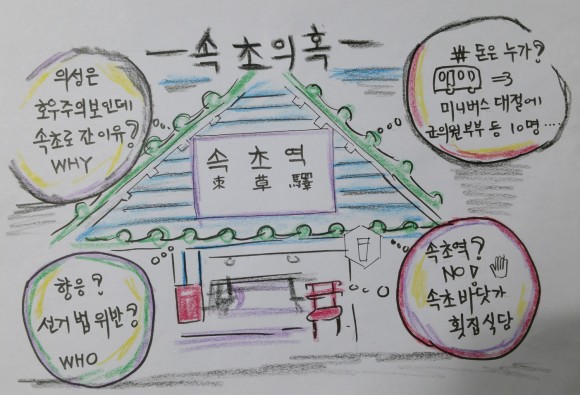 속초의혹
의성은
호우주의보인데
속초로 잔 이유?
WHY
# 돈은 누가?
미니버스 대절에
군의원부부 등 10명...
속초역
束草驛
향응?
선거법 위반?
WHO
속초역?
NO!
속초 바닷가
횟집식당